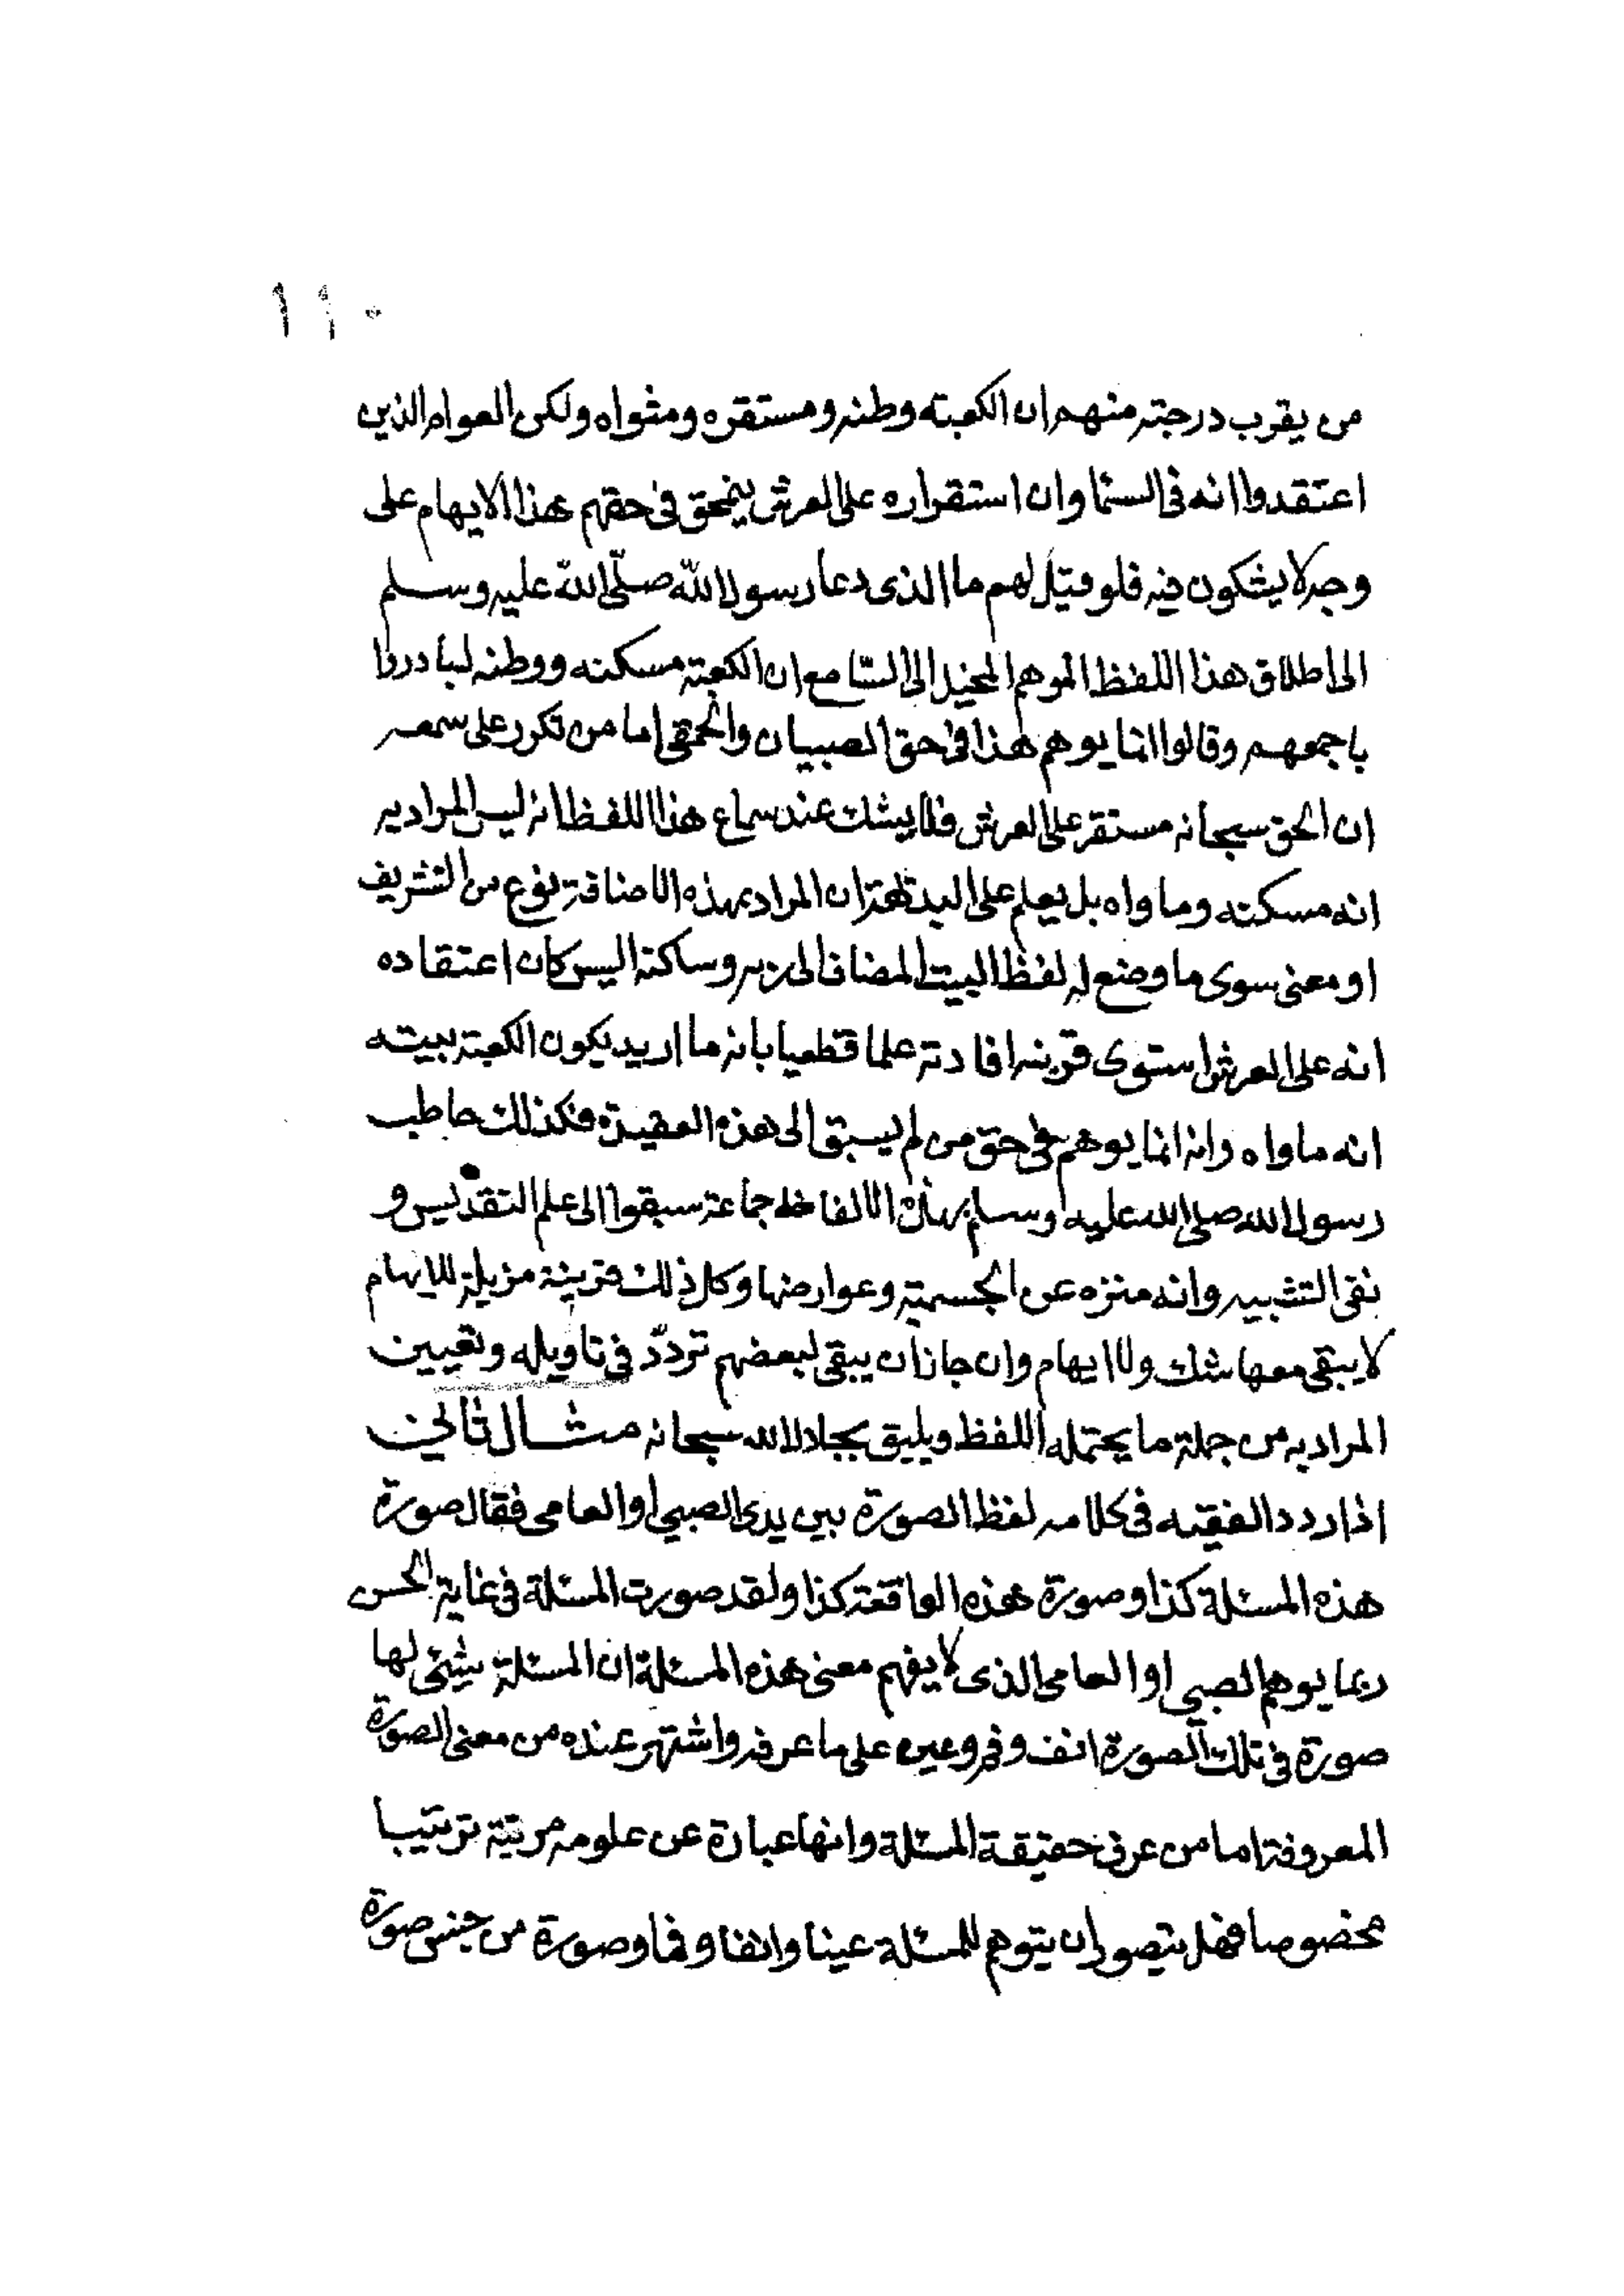 ١١٠
من يقرب درجته منهم ان الكعبة وطنه ومستقره ومثواه ولكن العوام الذين
اعتقدوا انه في السما وان استقراره على العرش ينمحق في حقهم هذا الايهام على
وجه لا يشكون فيه فلو قيل لهم ما الذى دعا رسول الله صلّى الله عليه وسلم
الى اطلاق هذا اللفظ الموهم المخيل الى السامع ان الكعبة مسكنه ووطنه لبادروا
باجمعهم وقالوا انما يوهم هذا في حق الصبيان والحمقى اما من تكرر على سمعه
ان الحق سبحانه مستقر على العرش فلا يشك عند سماع هذا اللفظ انه ليس المراد به
انه مسكنه وماواه بل يعلم على البديهة ان المراد بهذه الاضافة نوع من التشريف
او معنى سوى ما وضع له لفظ البيت المضاف الى ربه وساكنه اليس كان اعتقاده
انه على العرش استوى قرينه افادته علما قطعيا بانه ما اريد بكون الكعبة بيته
انه ماواه وانه انما يوهم في حق من لم يسبق الى هذه العقيدة فكذلك خاطب
رسول الله صلى الله عليه وسلم بهذه الالفاظ جماعة سبقوا الى علم التقديس و
نفى التشبيه وانه منزه عن الجسمية وعوارضها وكل ذلك قرينة مزيلة للايهام
لا يبقى معها شك ولا ايهام وان جاز ان يبقى لبعضهم تردّد في تاويله وتعيين
المراد به من جملة ما يحتمله اللفظ ويليق بجلال الله سبحانه مثال ثاني
اذا ردد الفقيه في كلامه لفظ الصورة بين يدى الصبي او العامى فقال صورة
هذه المسئلة كذا وصورة هذه الواقعة كذا ولقد صورت المسئلة في غاية الحسن
ربما يوهم الصبي او العامى الذى لا يفهم معنى هذه المسئلة ان المسئلة شئ لها
صورة في تلك الصورة انف وفم وعين على ما عرفه واشتهر عنده من معنى الصورة
المعروفة اما من عرف حقيقة المسئلة وانها عبارة عن علوم مرتبة ترتيبا
مخصوصا فهل يتصور ان يتوهم للمسئلة عينا وانفا وفما وصورة من جنس صورة